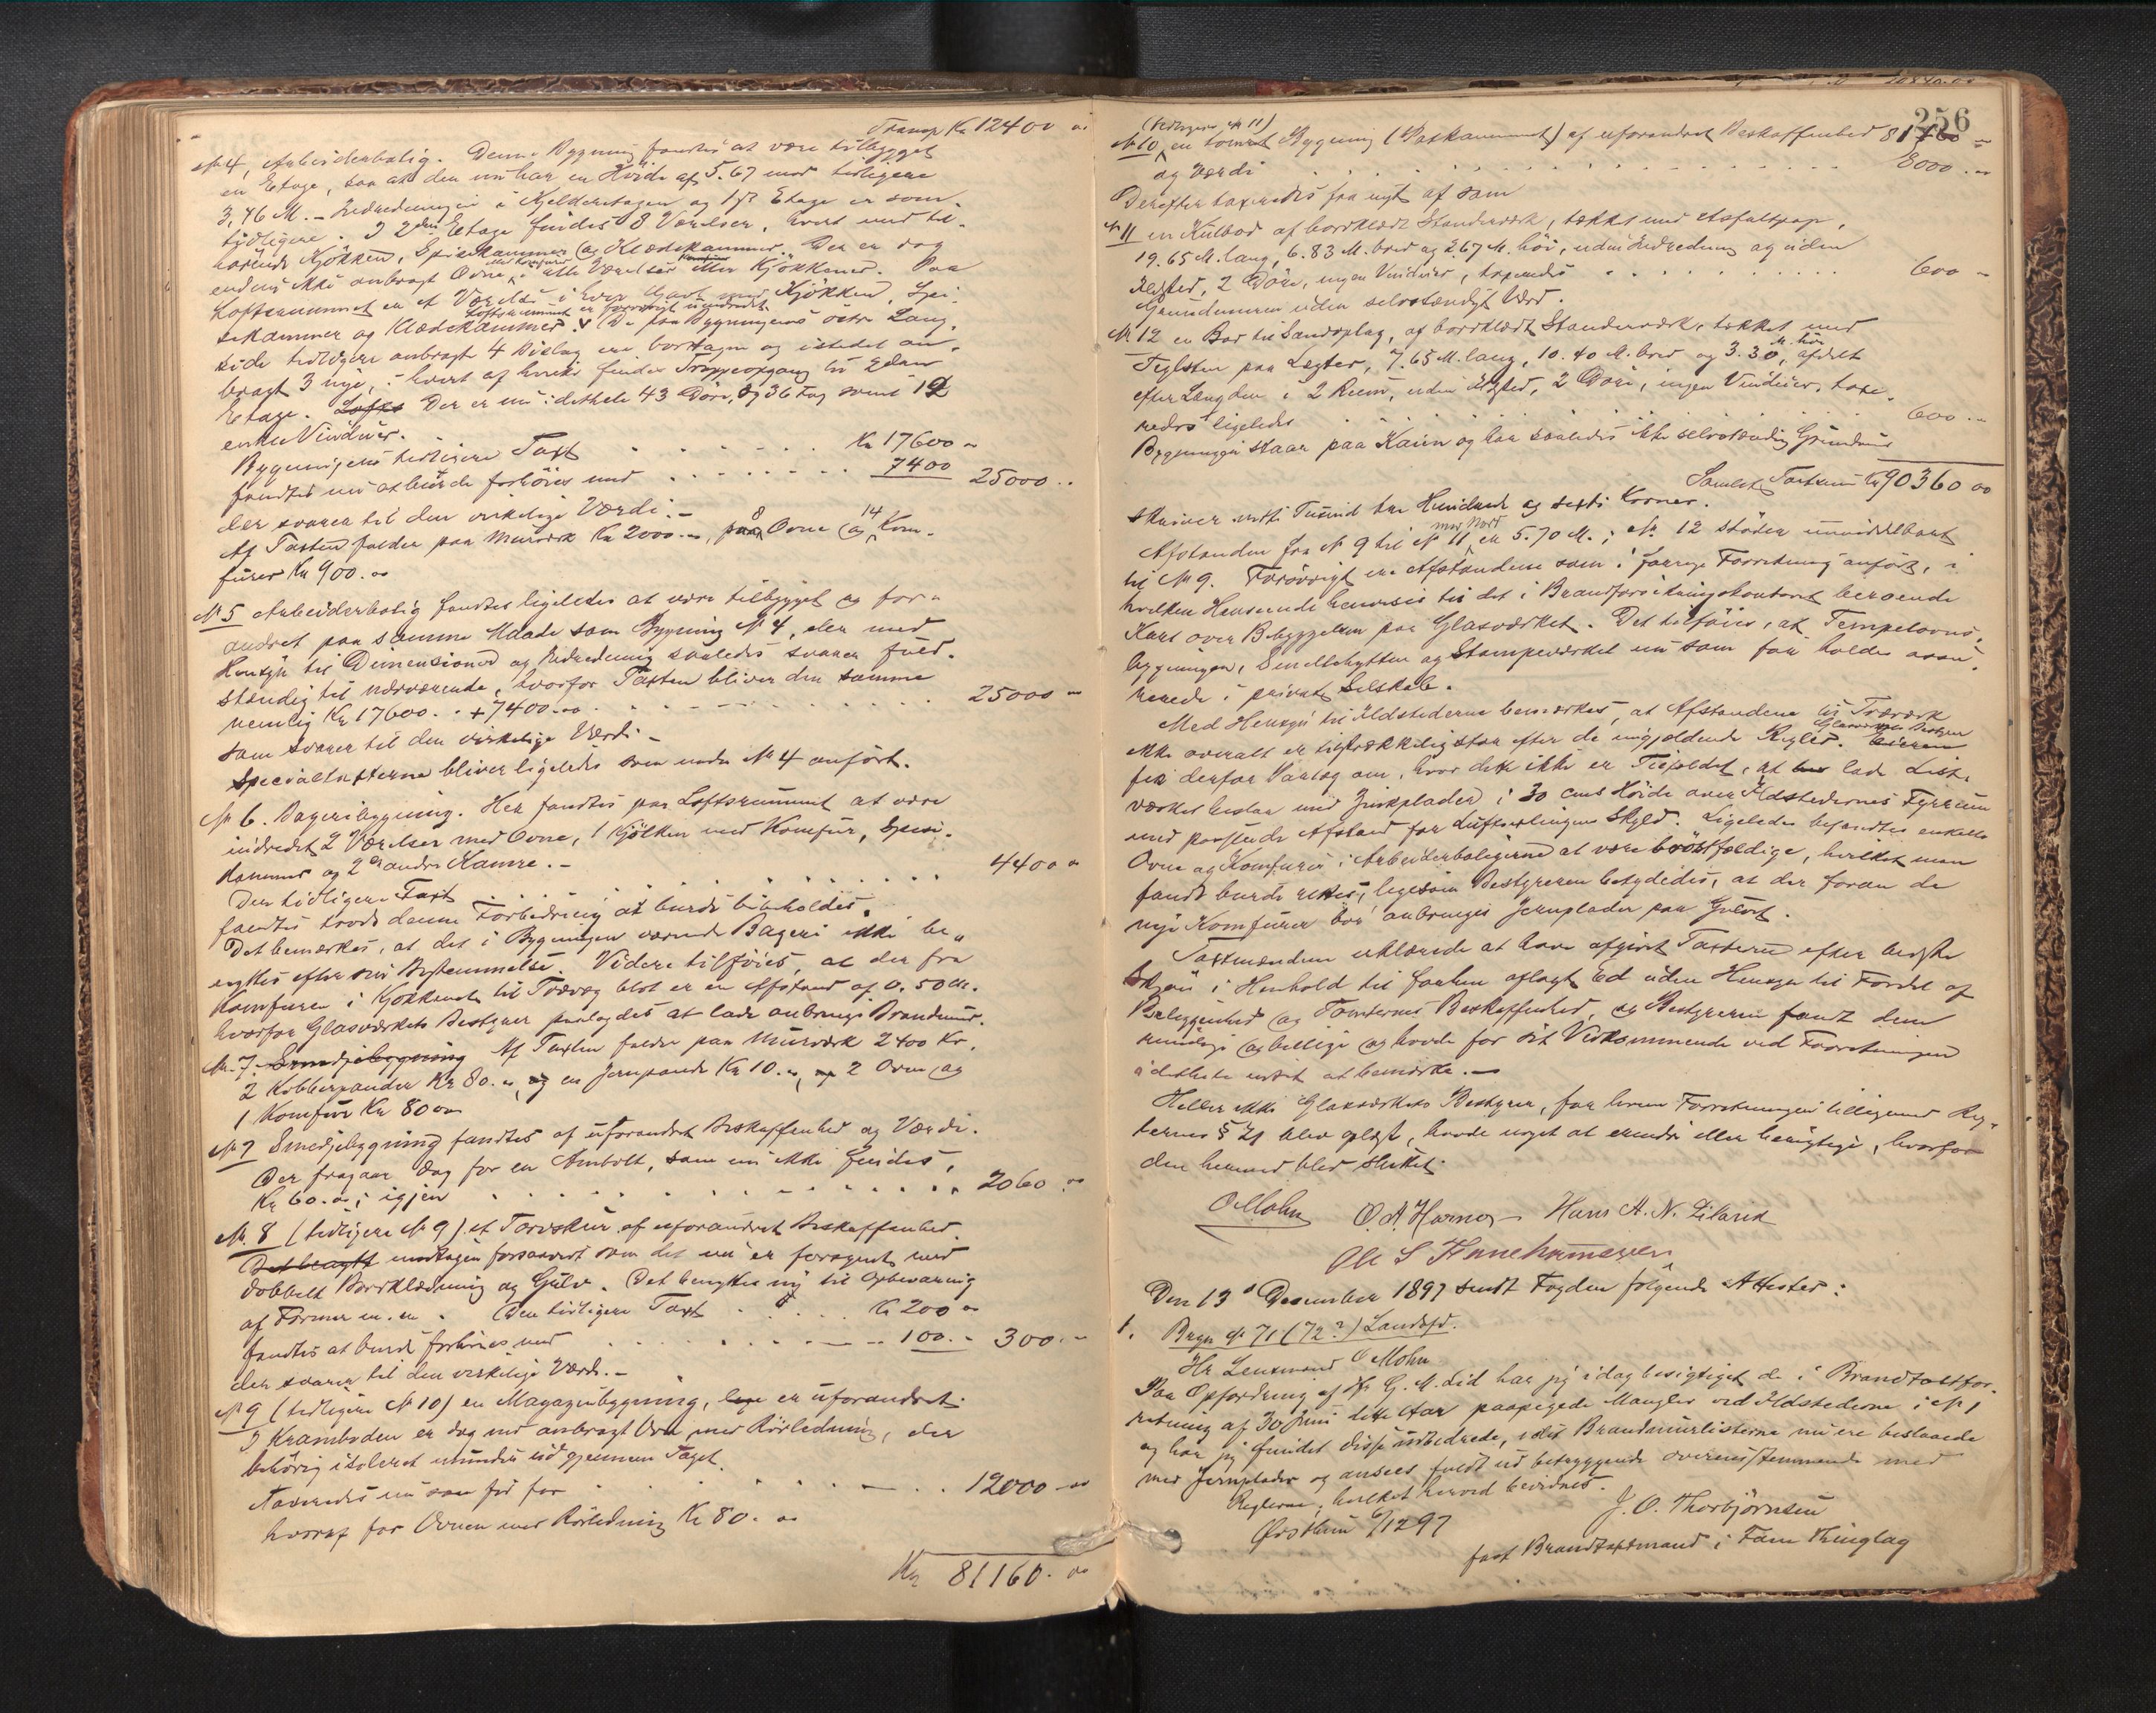 Transp Kr 12400 00
No 4, Arbeiderbolig. Denne Bygning fandtes at være tilbygget
en Etage, saa at den nu har en Høide af 5.67 mod tidligere
3,46 M. – Indredningen i Kjelderetagen og 1ste Etage er som
tidligere. I 2den Etage findes 8 Værelser, hvert med til-
hørende Kjøkken, Spisekammer og Klædekammer. Der er dog
endnu ikke anbragt Ovne i alle Værelser eller Kjøkkener. Paa
Loftsrummet er et Værelse i hver Gavl med Kjøkken, Spi-
Loftsrummet er forøvrigt uindredet
sekammer og Klædekammer. De paa Bygningens østre Lang-
side tidligere anbragte 4 Bislag ere borttagne og istedet an-
bragt 3 nye, i hvert af hvilke findes Trappeopgang til 2den
Etage. Der er nu i dethele 43 Døre, og 36 Fag samt 12
enkle Vinduer.
Bygningens tidligere Taxt Kr 17600 "
fandtes nu at burde forhøies med 7400 25000 ..
der svarer til den virkelige Værdi. –
Af Taxten falder paa Murværk Kr 2000.00, paa 8 Ovne og 14 Kom-
furer Kr 900.00
No 5 Arbeiderbolig fandtes ligeledes at være tilbygget og for-
andret paa samme Maade som Bygning No 4, den med
Hensyn til Dimensioner og Indredning saaledes svarer fuld-
stændig til nærværende, hvorfor Taxten bliver den samme
nemlig Kr 17600.. + 7400.00 25000 00
som svarer til den virkelige Værdi –
Specialtaxterne bliver ligeledes som under No 4 anført.
No 6. Bageribygning. Her fandtes paa Loftsrummet at være
indredet 2 Værelser med Ovne, 1 Kjøkken med Komfur, Spise-
kammer og 2 andre Kamre. –
Den tidligere Taxt 4400 00
fandtes trods denne Forbedring at burde bibeholdes.
Det bemærkes, at det i Bygningen værende Bageri ikke be-
nyttes efter sin Bestemmelse. Videre tilføies, at der fra
Komfuren i Kjøkkenet til Trævæg blot er en Afstand af 0.50 M.
hvorfor Glasværkets Bestyrer paalagdes at lade anbringe Brandmur.
No 7. Smedjebygning Af Taxten falder paa Murværk 2400 Kr,
2 Kobberpander Kr 80.", og en Jernpande Kr 10.", og 2 Ovne og
1 Komfur Kr 80 00
No 7 Smedjebygning fandtes af uforandret Beskaffenhed og Værdi.
Der fragaar dog for en Ambolt, som nu ikke findes,
Kr 60.00; igjen 2060 00
No 8 (tidligere No 9) et Torvskur af uforandret Beskaffenhed.
Det benyttes undtagen forsaavidt som det nu er forsynet med
dobbelt Bordklædning og Gulv. Det benyttes nu til Opbevaring
af Former m.m. Den tidligere Taxt Kr 200 00
fandtes at burde forhøies med 100. - 300. -
der svarer til den virkelige Værdi. –
No 9 (tidligere No 10) en Magazinbygning, er uforandret.
I Kramboden er dog nu anbragt Ovn med Rørledning, der
behørig isoleret udmunder ud gjennem Taget.
Taxeredes nu som før for 12000 00
hvoraf for Ovnen med Rørledning Kr 80.00
Kr 81160. 00
256
(tidligere No 11)
No 10 en tømret Bygning (Paskammeret) af uforandret Beskaffenhed 81160 -
og Værdi 8000. 00
Derefter taxeredes fra nyt af som
No 11 en Kulbod af bordklædt Standerværk, tækket med Asfaltpap,
19.65 M. lang, 6.83 M. bred og 2.67 M. høi, uden Indredning og uden
Ildsted, 2 Døre, ingen Vinduer, taxeredes 600 -
Grundmuren uden selvstændigt Værd.
No 12 en Bod til Sandoplag, af bordklædt Standerværk, tækket med
Teglsten paa Lægter, 7.65 M. lang, 10.40 M. bred og 3.30 M. høi, afdelt
efter Længden i 2 Rum, uden Ildsted, 2 Døre, ingen Vinduer, taxe-
redes ligeledes 600. -
Bygningen staar paa Kaien og har saaledes ikke selvstændig Grundmur
Samlet Taxtsum Kr 90360 00
skriver nitti Tusind tre Hundrede og sexti Kroner.
Afstanden fra No 9 til No 11 mod Nord er 5.70 M.; No 12 støder umiddelbart
til No 9. Forøvrigt ere Afstandene som i forrige Forretning anført, i
hvilken Henseende henvises til det i Brandforsikringskontoret beroende
Kart over Bebyggelsen paa Glasværket. Det tilføies, at Tempelovns-
bygningen, Smeltehytten og Stampeværket nu som før holdes assu-
rerede i privat Selskab.
Med Hensyn til Ildstederne bemærkes, at Afstandene til Træværk
ikke overalt er tilstrækkelig stor efter de nugjældende Regler. Glasværkets Bestyrer
fik derfor Paalæg om, hvor dette ikke er Tilfældet, at lade List-
værket beslaa med Zinkplader i 30 cms Høide over Ildstedernes Fyrrum
med passende Afstand for Luftvexlingens Skyld. Ligeledes befandtes enkelte
Ovne og Komfurer i Arbeiderboligerne at være brøstfældige, hvilket man
fandt burde rettes, ligesom Bestyreren betydedes, at der foran de
nye Komfurer bør anbringes Jernplader paa Gulvet.
Taxtmændene erklærede at have afgivet Taxterne efter bedste
Skjøn i Henhold til forhen aflagt Ed uden Hensyn til Fordel af
Beliggenhed og Tomternes Beskaffenhed, og Bestyreren fandt dem
rimelige og billige og havde for sit Vedkommende ved Forretningen
i dethele intet at bemærke. –
Heller ikke Glasværkets Bestyrer, for hvem Forretningen tilligemed Reg-
lernes § 21 blev oplæst, havde noget at erindre eller berigtige, hvorfor
den hermed blev sluttet.
O Mohn O. A. Hammer Hans A. N. Liland
Ole S
Den 13 December 1897 sendt Fogden følgende Attester:
1. Brgn No 71 (72?) Landsfd.
Hr Lensmand O Mohn
Paa Opfordring af Hr G. M. Lid har jeg idag besigtiget de i Brandtaxtfor-
retning af 30 Juni dette Aar paapegede Mangler ved Ildstederne i No 1
og har jeg fundet disse udbedrede, idet Brandmurlisterne nu ere beslaaede
med Jernplader og ansees fuldt ud betryggende overensstemmende med
Reglerne, hvilket herved bevidnes.
6/12 97
J. O. Thorbjørnsen
fast Brandtaxtmand i Fane Thinglag